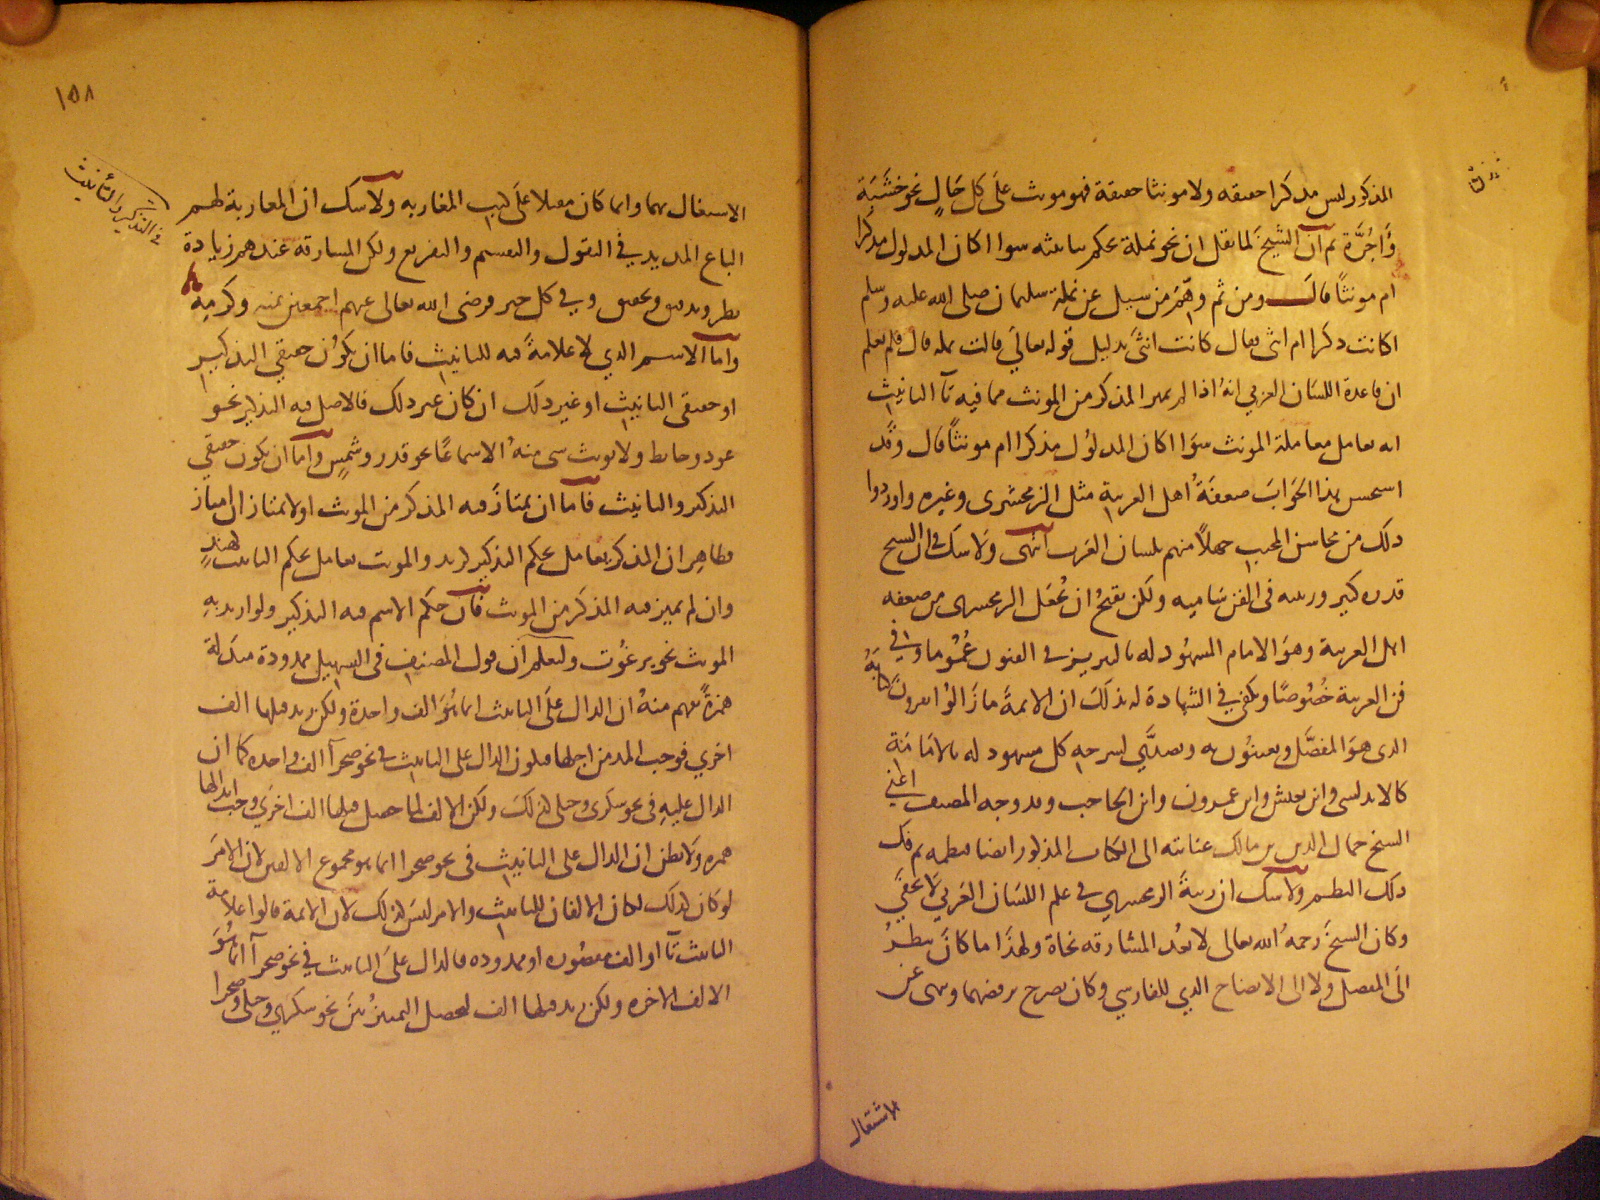 المذكور ليس مذكرا حقيقة ولا مونثا حقيقة فهو مونث على كل حال نحو خشبة
وآجرة ثم ان الشيخ لما نقل ان نحو نملة بحكم بتانيثه سوا اكان المدلول مذكرا
ام مونثا قال ومن ثم وهم من سيل عن نملة سليمان صلى الله عليه وسلم
اكانت ذكرا ام انثى فقال كانت انثى بدليل قوله تعالى قالت نملة قال فلم يعلم
ان قاعدة اللسان العربي انه اذا لم يميز المذكر من المونث مما فيه تآ التانيث
انه يعامل معاملة المونث سوا اكان المدلول مذكرا ام مونثا قال وقد
استحسن هذا الجواب ضعفة اهل العربية مثل الزمخشري وغيره واوردوا
ذلك من محاسن المجيب جهلا منهم بلسان العرب انتهى ولا شك في ان الشيخ
قدره كبير ورتبته في الفن سامية ولكن يقبح ان يجعل الزمخشري من ضعفة
اهل العربية وهو الامام المشهود له بالتبريز في الفنون عموما وفي
فن العربية خصوصا ويكفي في الشهادة له بذلك ان الائمة ما زالوا يقرون كتابه
الذي هو المفصل ويعتنون به ويصدي لشرحه كل مشهود له بالامامة
كالاندلسي وابن يعيش وابن عمرون وابن الحاجب ومدوجه المصنف اعني
الشيخ جمال الدين بن مالك عنايته الى الكتاب المذكور ايضا فنظمه ثم فك
ذلك النظم ولا شك ان رتبة الزمخشري في علم اللسان العربي لا تخفى
وكان الشيخ رحمه الله تعالى لا يعد المشارقه نحاة ولهذا ما كان ينظر
الى المفصل ولا الى الايضاح الذي للفارسي وكان يصرح برفضهما وينهى عن
الاشتغال
١٥٨
في التذكير والتأنيث
الاشتغال بهما وانما كان مقبلا على كتب المغاربه ولا شك ان المغاربة لهم
الباع المديد في النقول والتقسيم والتفريع ولكن المشارقه عندهم زيادة
نظر وتدقيق وتحقيق وفي كل خير فرضى الله تعالى عنهم اجمعين بمنه وكرمه
واما الاسم الذي لا علامة فيه للتانيث فاما ان يكون حقيقي التذكير
او حقيقي التانيث او غير ذلك ان كان غير ذلك فالاصل فيه التذكير نحو
عود وحايط ولا يونث شي منه الا سماعا نحو قدر وشمس واما ان يكون حقيقي
التذكير والتانيث فاما ان يمتاز فيه المذكر من المونث او لا يمتاز ان امتاز
فظاهر ان المذكر يعامل بحكم التذكير كزيد والمونث يعامل بحكم التانيث كهند
وان لم يميز فيه المذكر من المونث فان حكم الاسم فيه التذكير ولو اريد به
المونث نحو برغوث وليعلم ان قول المصنف في التسهيل ممدودة مبدلة
همزة يفهم منه ان الدال على التانيث انما هو الف واحدة ولكن زيد قبلها الف
اخري فوجب المد من اجلها فيكون الدال على التانيث في نحو صحرآ الف واحده كما ان
الدال عليه في نحو سكرى وحبلى كذلك ولكن الالف لما حصل قبلها الف اخرى وجب ابدالها
همزه ولا يظن ان الدال على التانيث في نحو صحرا انما هو مجموع الالفين لان الامر
لو كان كذلك لكان الالفان للتانيث والامر ليس كذلك لان الائمة قالوا علامة
التانيث تآ او الف مقصوره او ممدوده فالدال على التانيث في نحو صحرآ انما هو
الالف الاخره ولكن زيد قبلها الف لتحصل التمييز بين نحو سكري وحبلى وصحرا